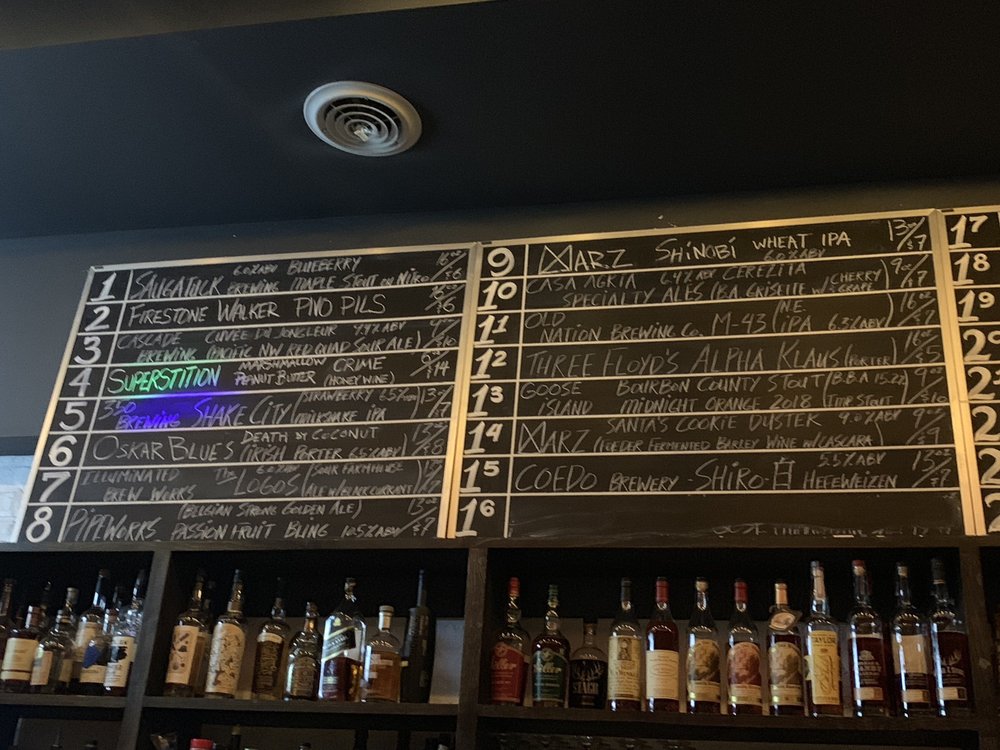 1
SAUGATUCK 6.0% ABV BLUEBERRY 16oz
BREWING MAPLE STOUT ON NITRO /$8
2
FIRESTONE WALKER PIVO PILS 16oz/$6
3
CASCADE CUVÉE DU JONGLEUR ABV
BREWING (PACIFIC NW RED QUAD SOUR ALE) /$10
4
SUPERSTITION MARSHMALLOW CRIME
PEANUT BUTTER (HONEY WINE) /$14
5
350 SHAKE CITY (STRAWBERRY 6.5%
BREWING MILKSHAKE IPA) 13oz/$7
6
OSKAR BLUE'S DEATH BY COCONUT 13oz
(IRISH PORTER 6.5% ABV) /$8
7
ILLUMINATED THE 6.0% ABV (SOUR FARMHOUSE
BREW WORKS LOGOS ALE W/BLACKCURRANT) /$7
8
(BELGIAN STRONG GOLDEN ALE) 13oz
PIPEWORKS PASSION FRUIT BLING 10.5% ABV /$7
9
MARZ SHINOBI WHEAT IPA 13oz
6.0% ABV /$7
10
CASA AGRIA 6.4% ABV CEREZITA (CHERRY) 9oz
SPECIALTY ALES (B.A. GRISETTE W/ GRAPE) /$7
11
OLD (N.E. 16oz
NATION BREWING CO. M-43 IPA 6.8% ABV) /$7
12
THREE FLOYD'S ALPHA KLAUS (PORTER) 16oz/$5
13
GOOSE BOURBON COUNTY STOUT (B.B.A 15.2% 9oz
ISLAND MIDNIGHT ORANGE 2018 IMP STOUT) /$10
14
MARZ SANTA'S COOKIE DUSTER ABV 9oz
(FOEDER FERMENTED BARLEY WINE W/CASCARA) /$9
15
COEDO BREWERY -SHIRO- HEFEWEIZEN 5.5% ABV 13oz/$7
16
17
18
19
2
2
2
2
Weller
Weller
STAGG
TAYLOR